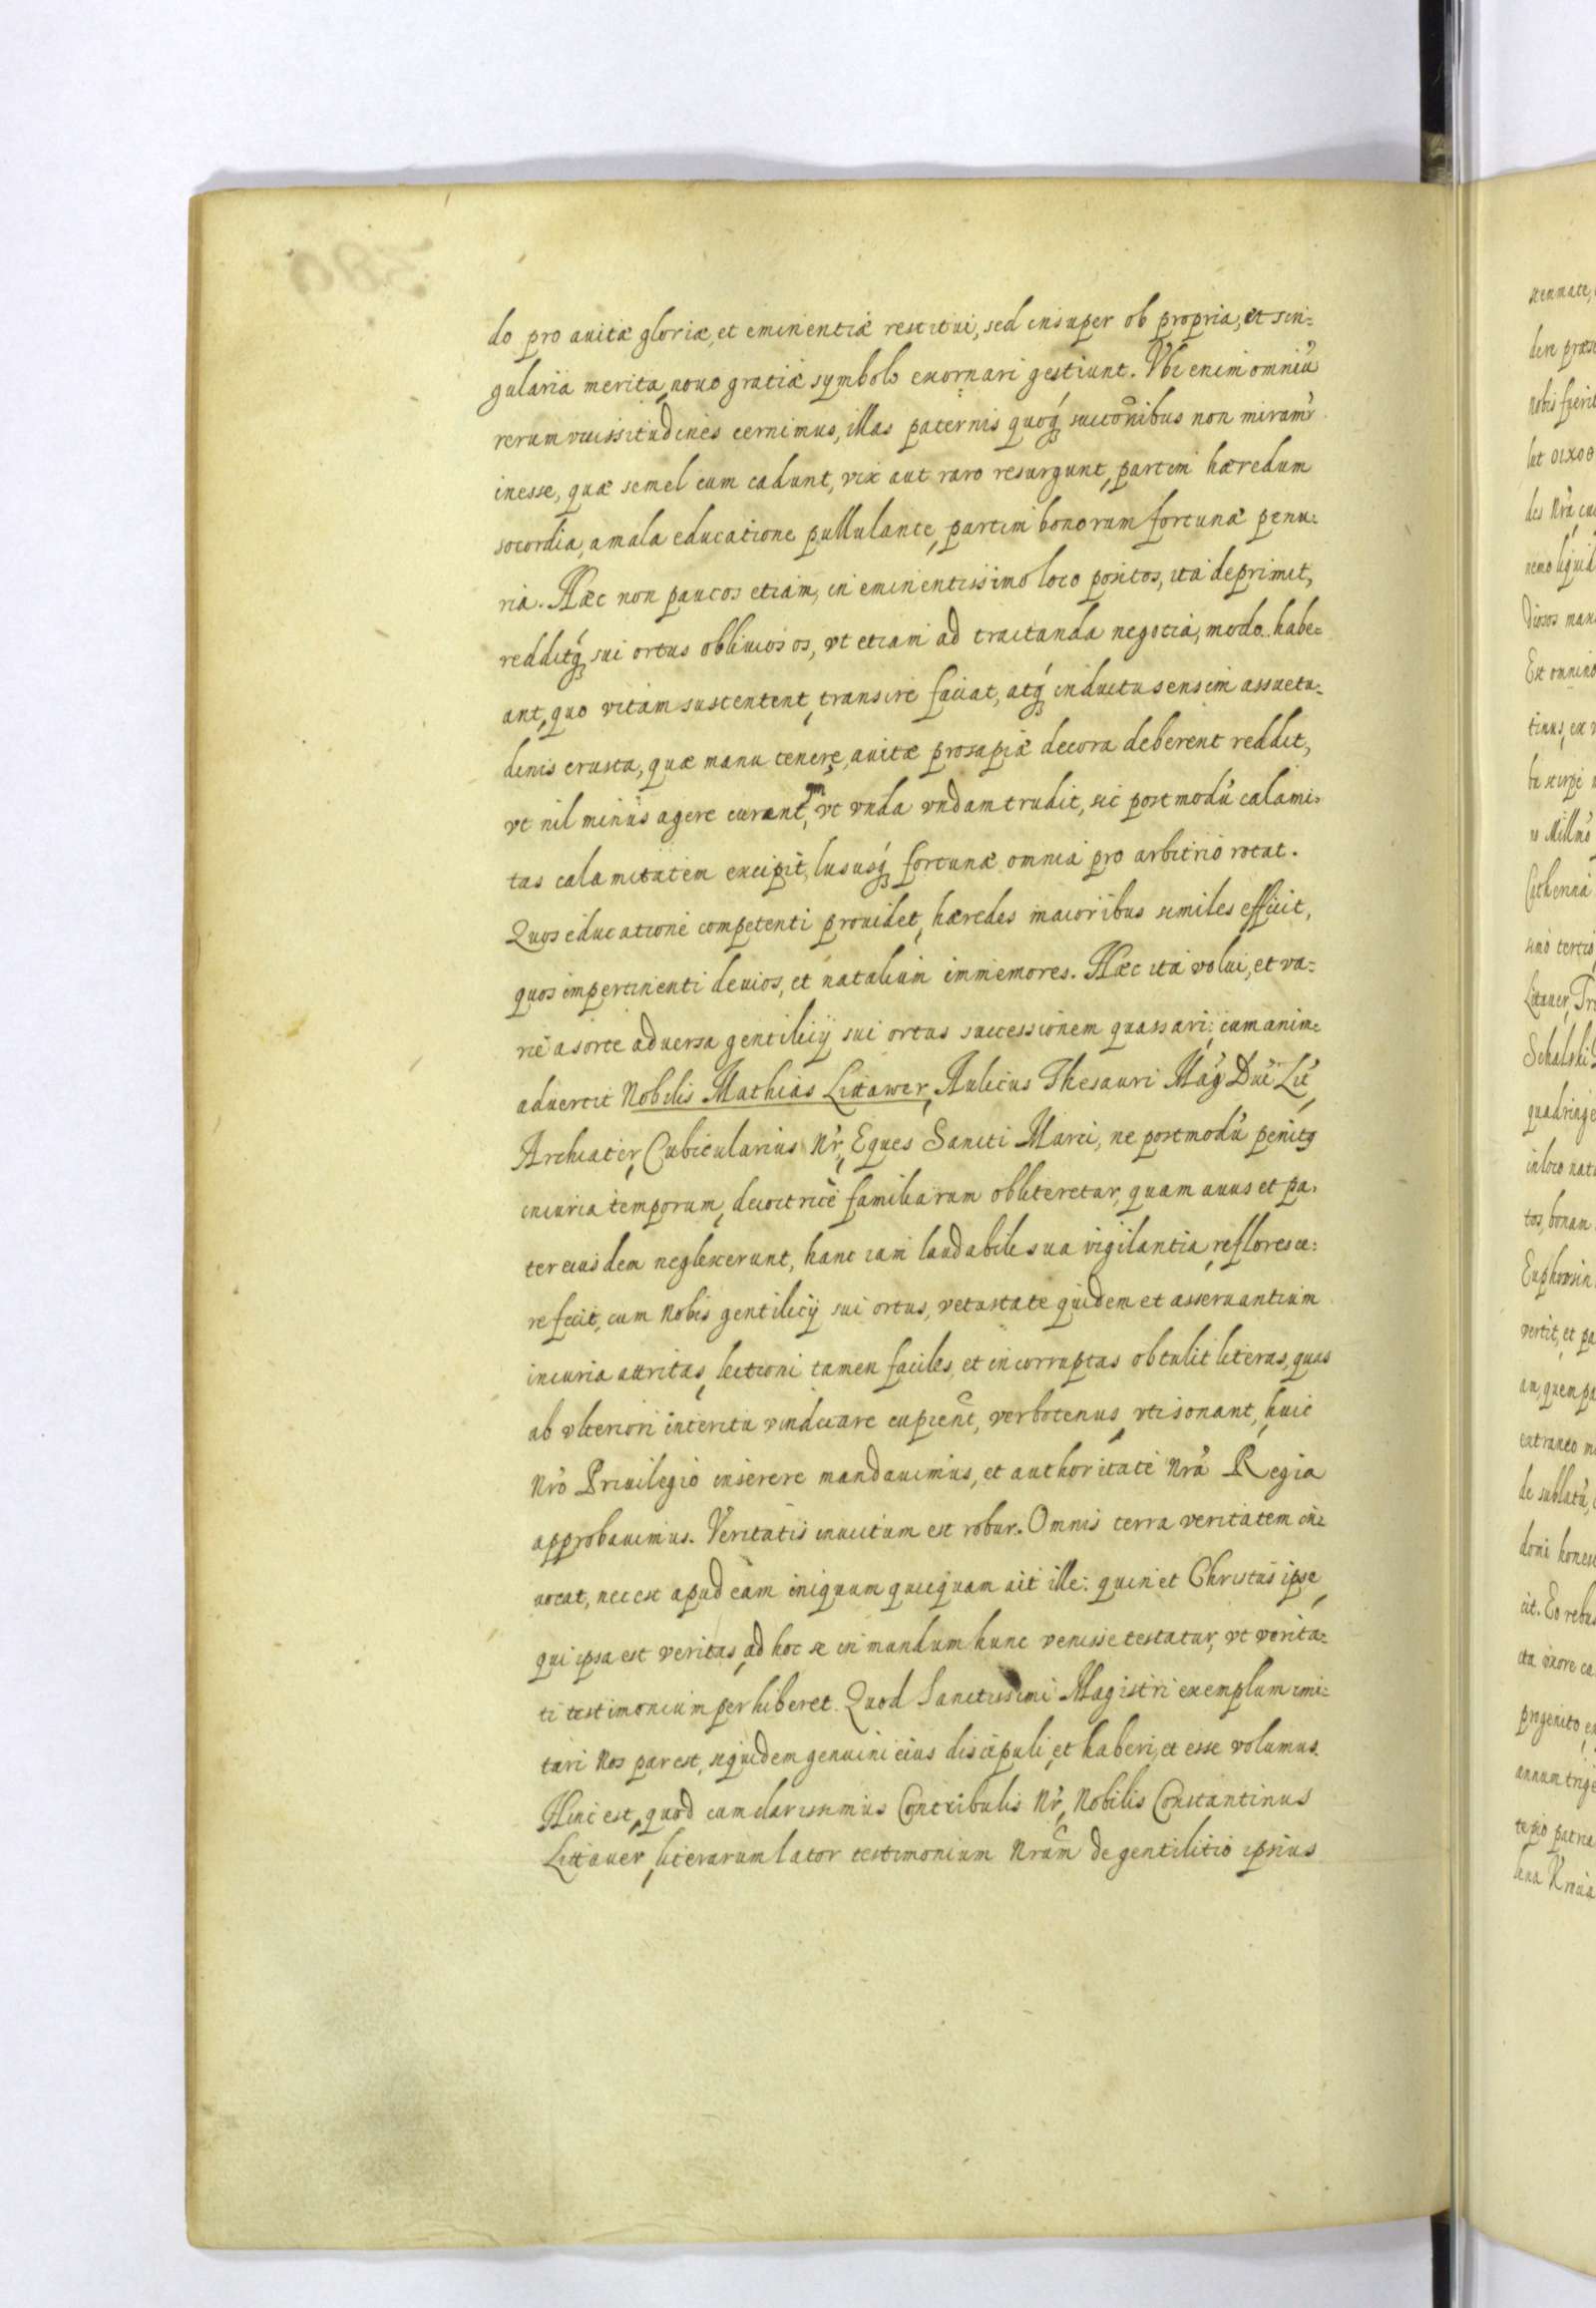 do pro auitæ gloriæ, et eminentiæ restitui, sed insuper ob propria, et sin:
gularia merita, nouo gratiæ symbolo exornari gestiunt. Vbi enim omniũ
rerum vicissitudines cernimus, illas paternis quoq́ꝫ succõnibus non miramr
inesse, quæ semel cum cadunt, vix aut raro resurgunt, partim hæredum
socordia, a mala educatione pullulante, partim bonorum fortunæ penu:
ria. Hæc non paucos etiam, in eminentissimo loco positos, ita deprimit,
redditq́ꝫ sui ortus obliuiosos, vt etiam ad tractanda negotia, modo habe:
ant, quo vitam sustentent, transire faciat, atq́ꝫ inductu sensim assuetu:
dinis crusta, quæ manu tenere, auitæ prosapiæ decora deberent reddit,
vt nil minus agere curent, vt vnda vndam trudit, sic postmodũ calami:
tas calamitatem excipit, lususq́ꝫ fortunæ omnia pro arbitrio rotat.
Quos educatione competenti prouidet, hæredes maioribus similes efficit,
quos impertinenti deuios, et natalium immemores. Hæc ita volui, et va:
rie a sorte aduersa gentilicÿ sui ortus successionem quassari: cum anim:
aduertit Nobilis Mathias Littawer, Aulicus Thesauri Mag Duc Lit,
Archiater, Cubicularius Nr, Eques Sancti Marci, ne postmodũ penitꝫ
iniuria temporum, decoctrice familiarum obliteretur, quam auus et pa:
ter eiusdem neglexerunt, hanc iam laudabili sua vigilantia, reflorescè:
re fecit, cum Nobis gentilicÿ sui ortus, vetustate quidem et asseruantium
incuria attritas, lectioni tamen faciles, et incorruptas obtulit literas, quas
ab vlteriori interitu vindicare cupient, verbotenus, vti sonant, huic
Nro Priuilegio inserere mandauimus, et authoritate Nra Regia
approbauimus. Veritatis inuictum est robur. Omnis terra veritatem in:
uocat, nec est apud eam iniquum quicquam ait ille: quin et Christus ipse,
qui ipsa est veritas, ad hoc se in mundum hunc venisse testatur, vt verita:
ti testimonium perhiberet. Quod Sanctissimi Magistri exemplum imi:
tari Nos par est, siquidem genuini eius discipuli, et haberi, et esse volumus.
Hinc est, quod cum clarissimus Contribulis Nr, Nobilis Constantinus
Littauer, literarum lator testimonium Nrum de gentilitio ipsius